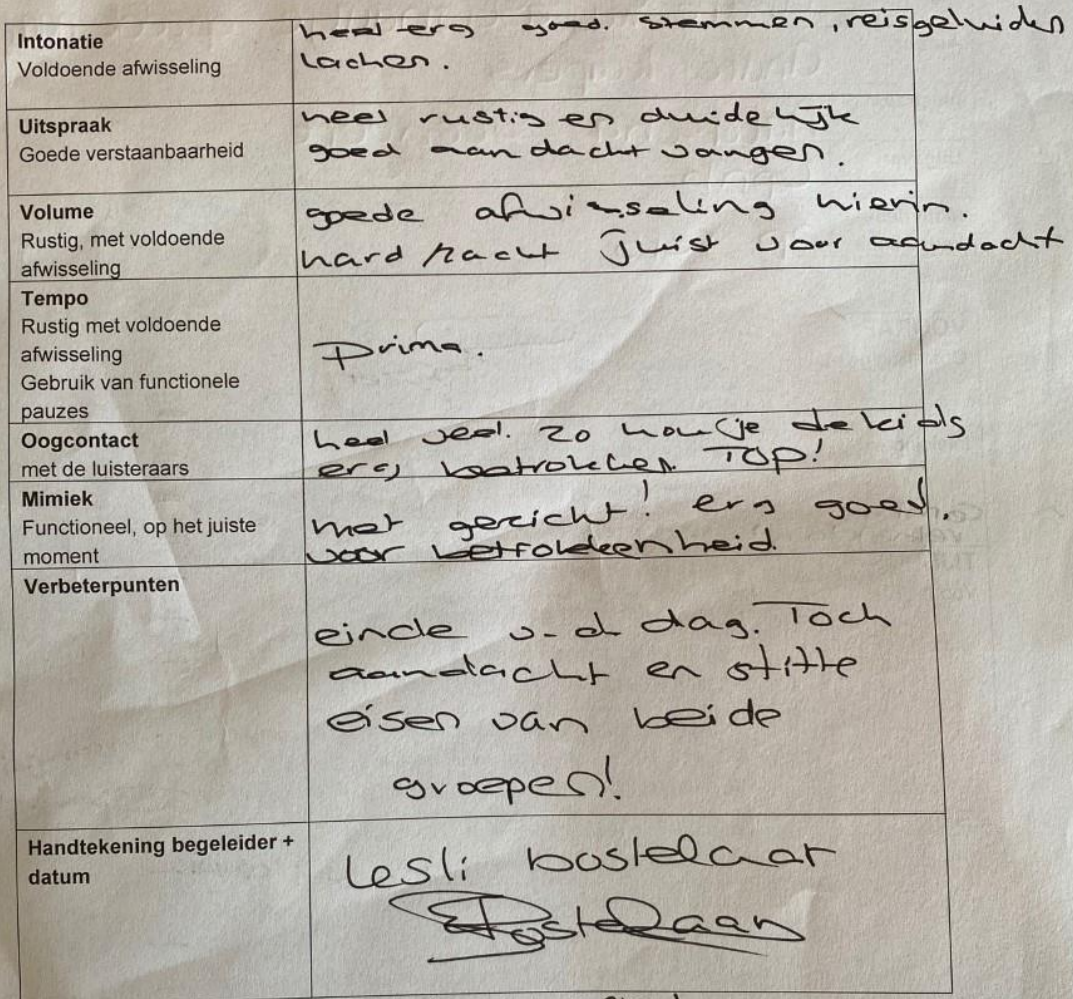 Intonatie
Voldoende afwisseling
heel erg goed. stemmen, reisgeluiden
lachen.
Uitspraak
Goede verstaanbaarheid
heel rustig en duidelijk
goed aandacht vangen.
Volume
Rustig, met voldoende
afwisseling
goede afwisseling hierin.
hard/zacht juist voor aandacht
Tempo
Rustig met voldoende
afwisseling
Gebruik van functionele
pauzes
Prima.
Oogcontact
met de luisteraars
heel veel. zo hou je de kids
erg betrokken. TOP!
Mimiek
Functioneel, op het juiste
moment
met gezicht! erg goed.
voor betrokkeenheid.
Verbeterpunten
einde v-d dag. Toch
aandacht en stilte
eisen van beide
groepen!
Handtekening begeleider +
datum
Lesli bostelaar